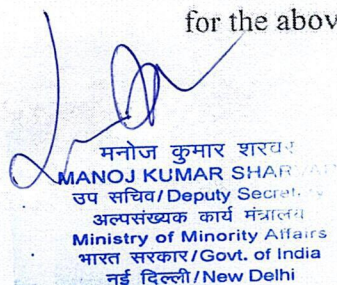 for the abov
मनोज कुमार
MANOJ KUMAR
उप सचिव/Deputy
अल्पसंख्यक कार्य मंत्रालय
Ministry of Minority Affairs
भारत सरकार/Govt. of India
नई दिल्ली/New Delhi